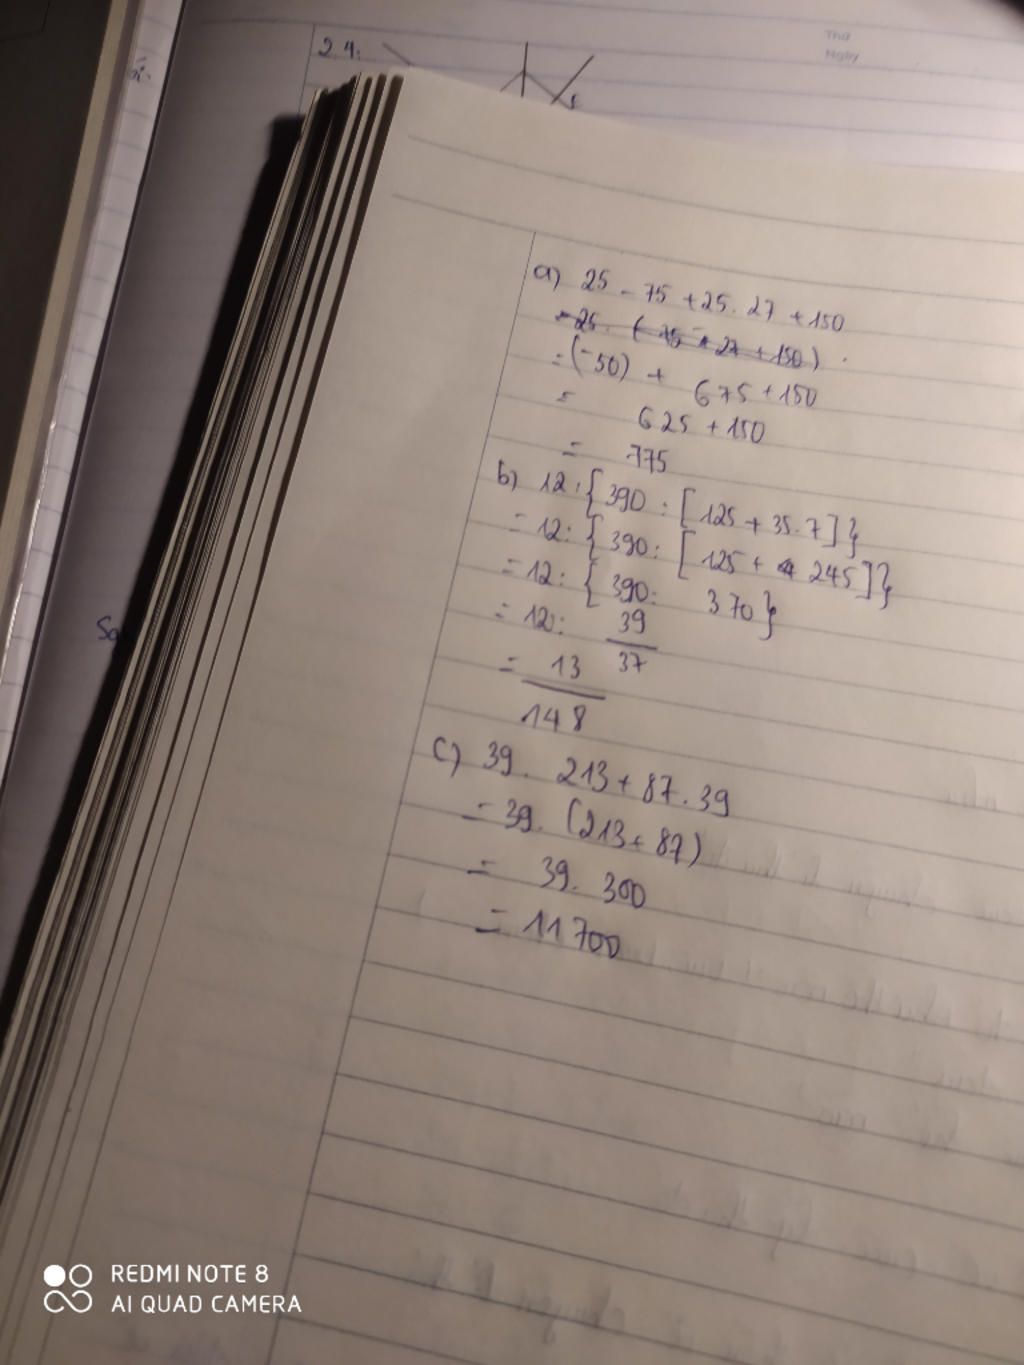 2.4:
Thứ
Ngày
a) 25 - 75 + 25. 27 + 150
= 25. ( 75 + 27 + 150)
= (-50) + 675 + 150
= 625 + 150
= 775
b) 12 : { 390 : [ 125 + 35.7 ] }
= 12: { 390: [ 125 + 245 ] }
= 12: { 390: 370 }
= 12: 39
37
= 13
148
c) 39. 213 + 87. 39
= 39. (213 + 87)
= 39. 300
= 11700
REDMI NOTE 8
AI QUAD CAMERA